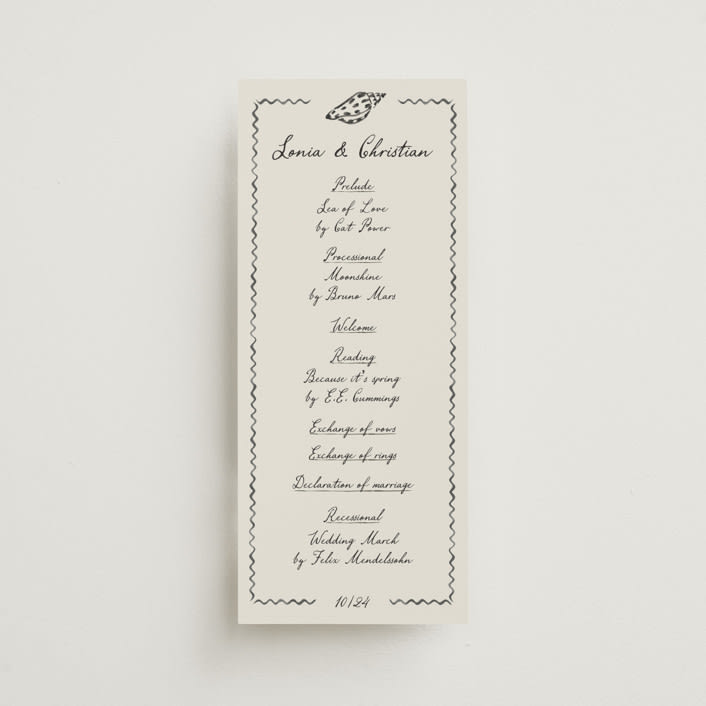 Lonia & Christian
Prelude
Sea of Love
by Cat Power
Processional
Moonshine
by Bruno Mars
Welcome
Reading
Because it's spring
by E.E. Cummings
Exchange of vows
Exchange of rings
Declaration of marriage
Recessional
Wedding March
by Felix Mendelssohn
10/24